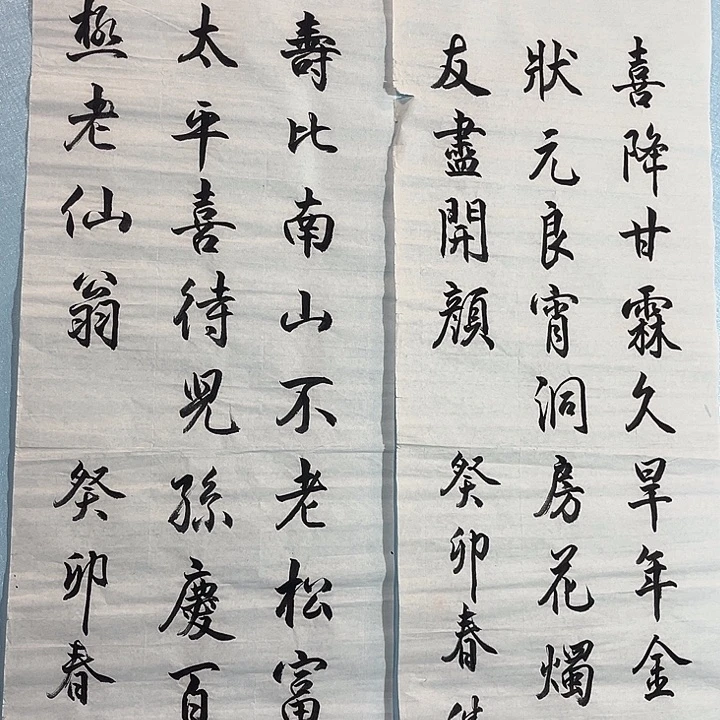 喜降甘霖久旱年金
狀元良宵洞房花燭
友盡開顏 癸卯春
壽比南山不老松富
太平喜待兒孫慶百
極老仙翁 癸卯春